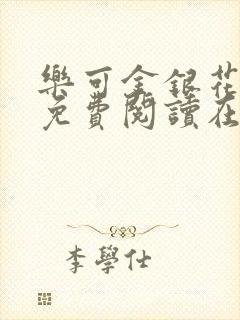 樂可金銀花
免費閱讀在
李學仕